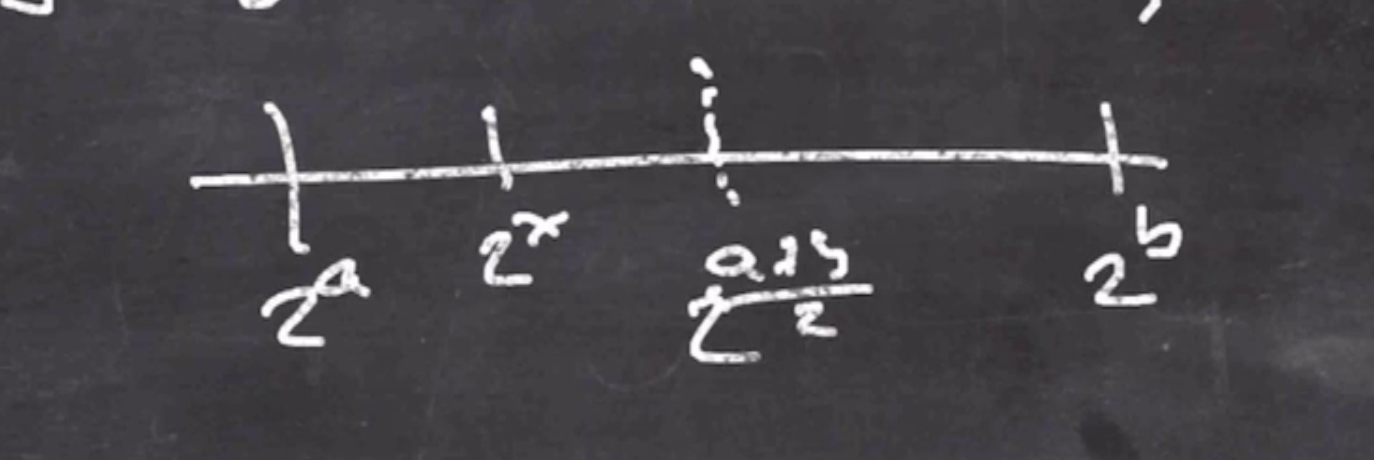 2^a 2^x 2^{\frac{a+b}{2}} 2^b